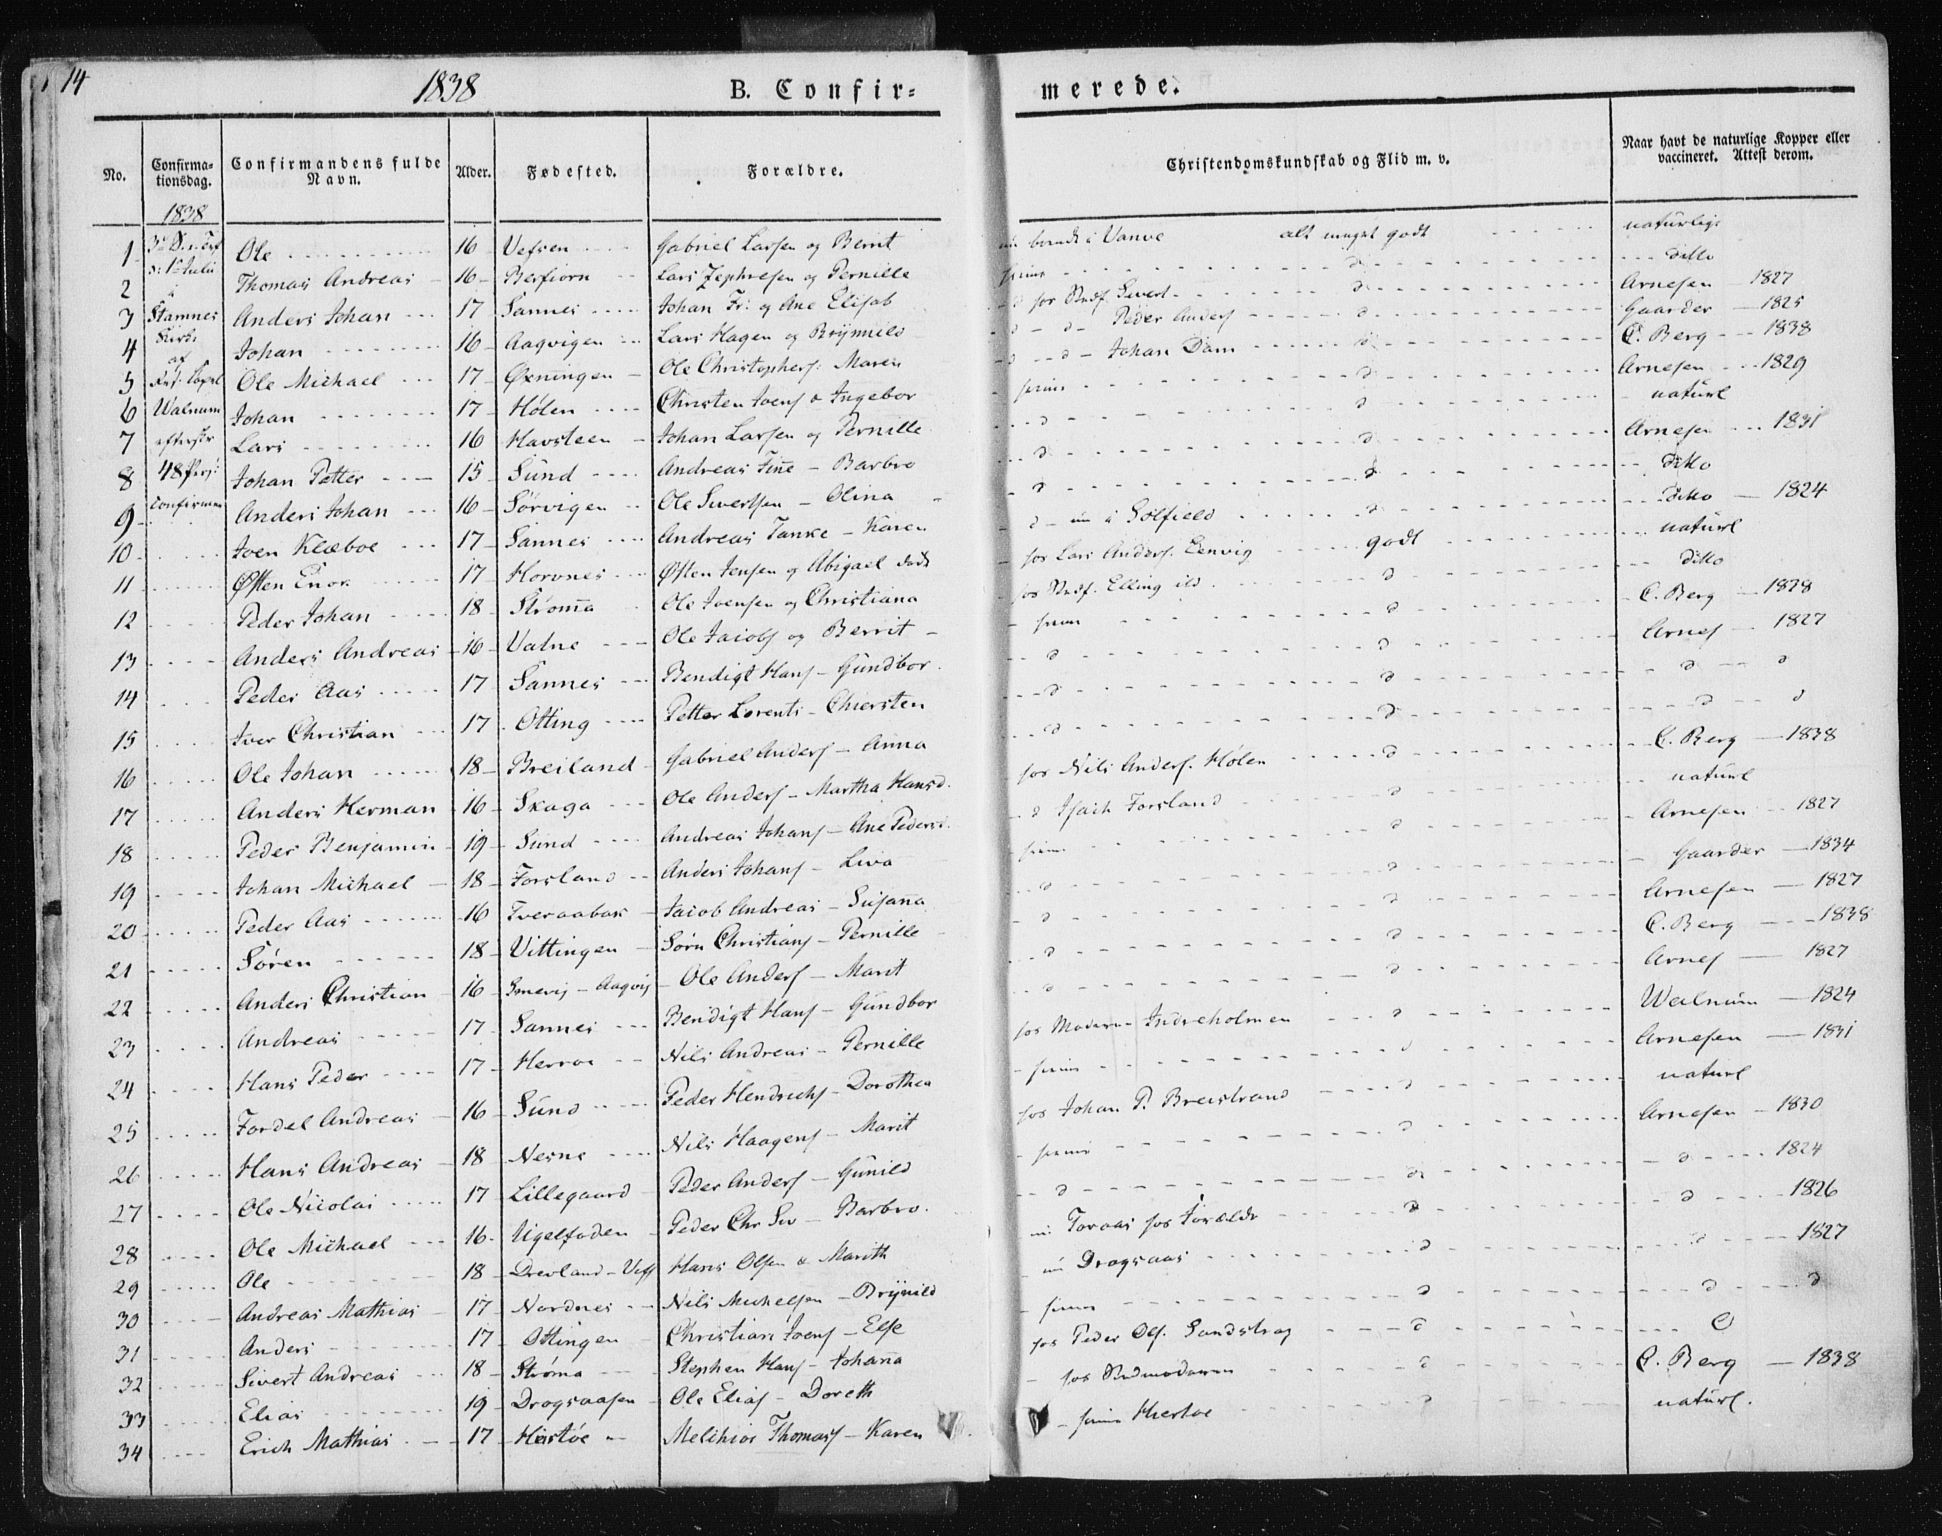 14
1838
B. Confir=
merede.
No. Confirma-tionsdag. Confirmandens fulde Navn. Alder. Fødested. Forældre. Christendomskundskab og Flid m. v. Naar havt de naturlige Kopper eller vaccineret. Attest derom.
1838
1 Ole 16 Vefsen Gabriel Larsen og Berrit alt meget godt naturlige
2 1ste Julii Thomas Andreas 16 Lars Zephresen og Pernille d ditto
3 Stamnes Anders Johan 17 Sannes Johan Fr: og Ane Elisab d Arnesen 1827
4 Kirke Johan 16 Aaqvigen Lars Hagen og Brynnild d - d - Peder Anders d Gaarder 1825
5 af Ole Michael 17 Øxningen Ole Christophers: Maren d - d - Johan Dam d C. Berg 1838
6 Walnum Johan 17 Hølen Christen Joens & Ingebor hiem d Arnesen 1829
7 Lars 16 Havsteen Johan Larsen og Pernille d d naturl
8 48 Johan Petter 15 Sund Andreas Finne - Barbro d d Arnesen 1831
9 Anders Johan 16 Sørvigen Ole Sivertsen - Olina d d ditto
10 Joen Klæboe 17 Sannes Andreas Tanke - Karen d - nu i Solfield d ditto 1824
11 Østen Enok 17 Horvnes Østen Jensen og Abigael hos Lars Anders. Eenvig godt naturl
12 Peder Johan 18 Strøma Ole Joensen og Christiana d ditto
13 Anders Andreas 16 Valne Ole Jacobs og Berrit hiem d C. Berg 1838
14 Peder Aas 17 Sannes Bendigt Hans - Gundbor d d Arnes 1827
15 Iver Christian 17 Otting Petter Lorents - Chiersten d d d d
16 Ole Johan 18 Breiland Gabriel Anders - Anna d d d d
17 Anders Herman 16 Skaga Ole Anders - Martha Hansd. hos Nils Anders. Hølen d C. Berg 1838
18 Peder Benjamin 19 Sund Andreas Johans - Ane Peders d Isach Forsland d naturl
19 Johan Michael 18 Forsland Anders Johans - Liva hiem Arnesen 1827
20 Peder Aas 16 Tveraabak Jacob Andreas - Susanna d d Gaarder 1834
21 Søren 18 Vittingen Sørn Christians - Pernille d d Arnesen 1827
22 Anders Christian 16 Smevig - Aaqvig Ole Anders - Marit d d C. Berg 1838
23 Andreas 17 Sannes Bendigt Hans - Gundbor d d Arnes 1827
24 Hans Peder 17 Herroe Nils Andreas - Pernille hos Moderen Indreholmen d Walnum 1824
25 Fordel Andreas 16 Sund Peder Hendrichs - Dorothea hiem d Arnesen 1831
26 Hans Andreas 18 Nesne Nils Haagens - Marit hos Johan P. Breistrand d naturl
27 Ole Nicolai 17 Lillegaard Peder Anders - Gunild hiem d Arnesen 1830
28 Ole Michael 16 Ugelfoden Peder Chr - Barbro. d d d 1824
29 Ole 18 Drevland - Vefs Hans Olsen & Marith Toraas hos Forældr d d 1826
30 Andreas Mathias 17 Nordnes Nils Michelsen - Brynild nu Dragsaas d d 1827
31 Anders 17 Ottingen Christian Joens - Else hiem d d d
32 Sivert Andreas 18 Strøma Stephen Hans - Johanna hos Peder Ols. Sandstrag d
33 Elias 19 Dragsaasen Ole Elias - Doreth d C. Berg 1838
34 Erich Mathias 17 Hestøe Melchior Thomas - Karen d naturl.